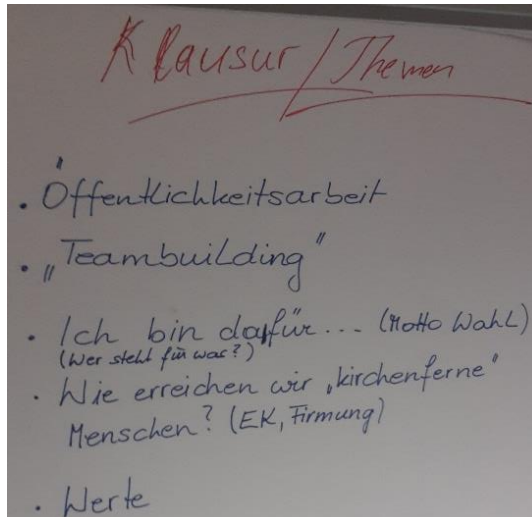 Klausur/Themen
• Öffentlichkeitsarbeit
• „Teambuilding"
• Ich bin dafür... (Motto Wahl)
(Wer steht für was?)
• Wie erreichen wir „kirchenferne"
Menschen? (EK, Firmung)
• Werte